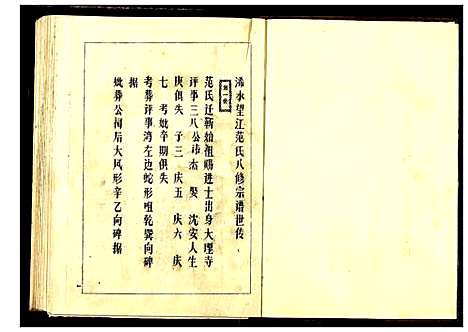 浠水望江范氏八修宗谱世传
第一卷
范氏迁蕲始祖赐进士出身大理寺
评事三八公讳杰 娶 沈安人生
庚俱失 子三 庆五 庆六 庆
七 考妣卒期俱失
考葬评事湾左边蛇形咀乾巽向碑
据
妣葬公祠后大凤形辛乙向碑据